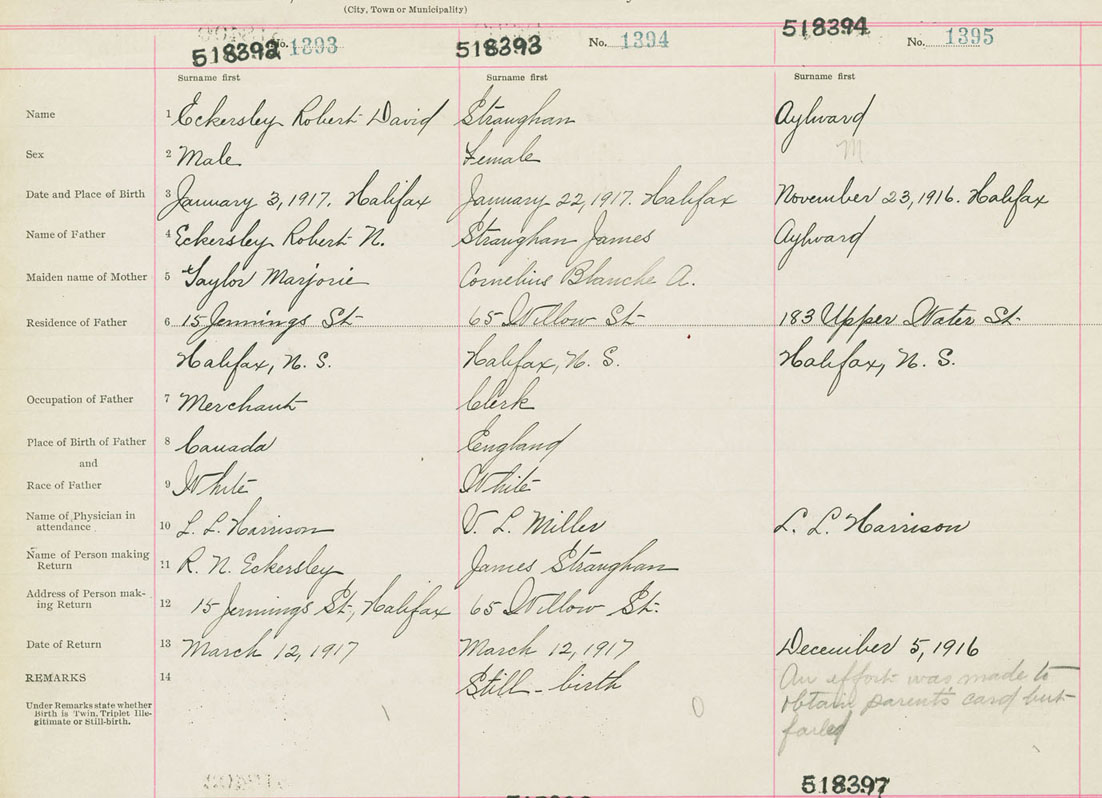 (City, Town or Municipality)
518392 No. 1393
518393 No. 1394
518394 No. 1395
Surname first Surname first Surname first
Name 1 Eckersley Robert David Straughan Aylward
Sex 2 Male Female M
Date and Place of Birth 3 January 3, 1917. Halifax January 22, 1917. Halifax November 23, 1916. Halifax
Name of Father 4 Eckersley Robert N. Straughan James Aylward
Maiden name of Mother 5 Taylor Marjorie Cornelius Blanche A.
Residence of Father 6 15 Jennings St 65 Willow St 183 Upper Water St.
Halifax, N. S. Halifax, N. S. Halifax, N. S.
Occupation of Father 7 Merchant Clerk
Place of Birth of Father 8 Canada England
and
Race of Father 9 White White
Name of Physician in
attendance 10 L. L. Harrison V. L. Miller L. L. Harrison
Name of Person making
Return 11 R. N. Eckersley James Straughan
Address of Person mak-
ing Return 12 15 Jennings St., Halifax 65 Willow St.
Date of Return 13 March 12, 1917 March 12, 1917 December 5, 1916
REMARKS 14 Still-birth An effort was made to
obtain parent's card but
failed
Under Remarks state whether
Birth is Twin, Triplet Ille-
gitimate or Still-birth.
518397